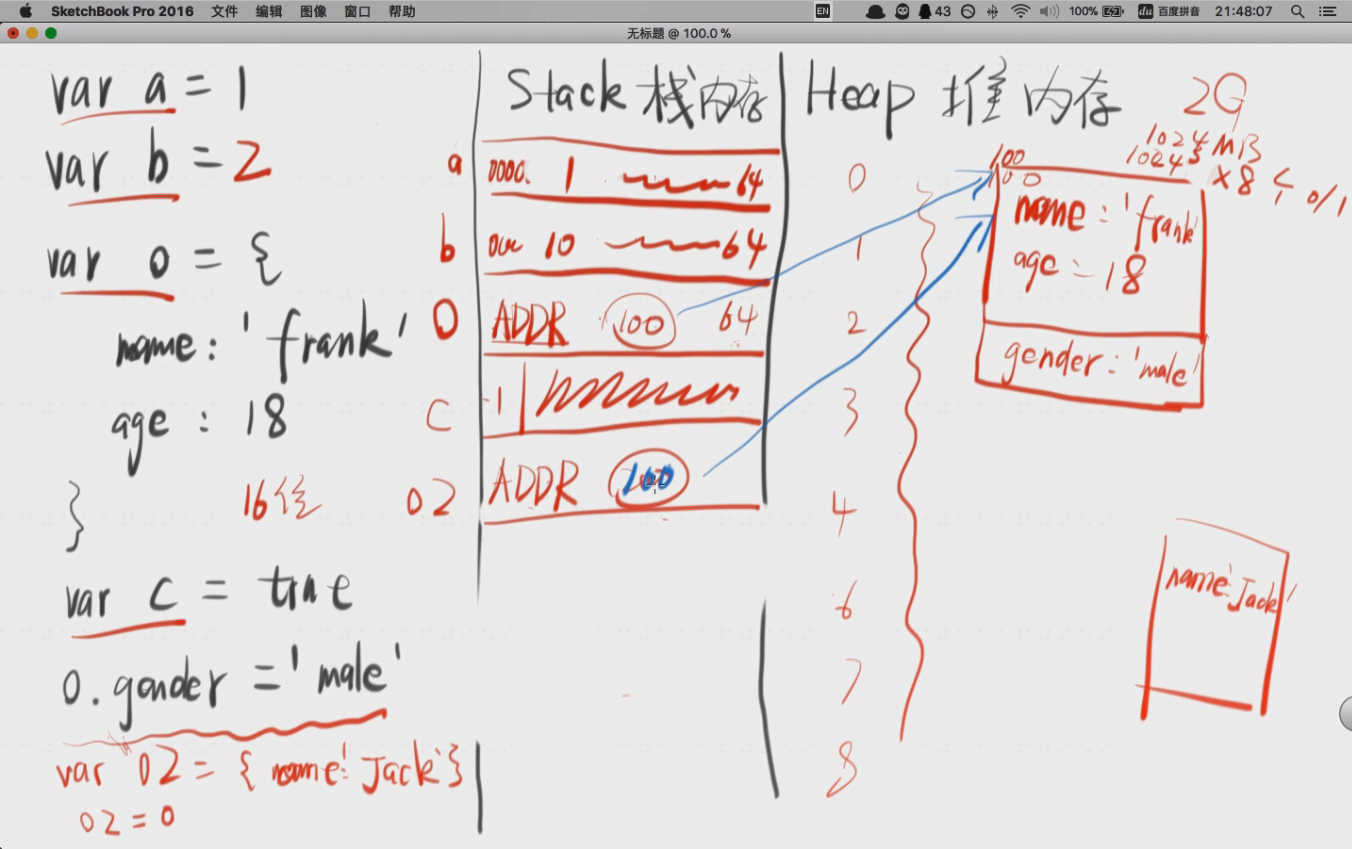 SketchBook Pro 2016 文件 编辑 图像 窗口 帮助 EN 43 100% du 百度拼音 21:48:07
无标题 @ 100.0 %
var a = 1
var b = 2
var o = {
name: 'frank'
age : 18
}
16位
var c = true
o.gender = 'male'
var o2 = { name: 'Jack' }
o2 = o
Stack 栈内存
a 0000. 1 64
b 10 64
o ADDR 100 64
c 1
o2 ADDR 100
Heap 堆内存
2G
1024 MB
1024
×8 个 0/1
0
1
2
3
4
6
7
8
100
100
name : 'frank'
age = 18
gender : 'male'
name: 'Jack'